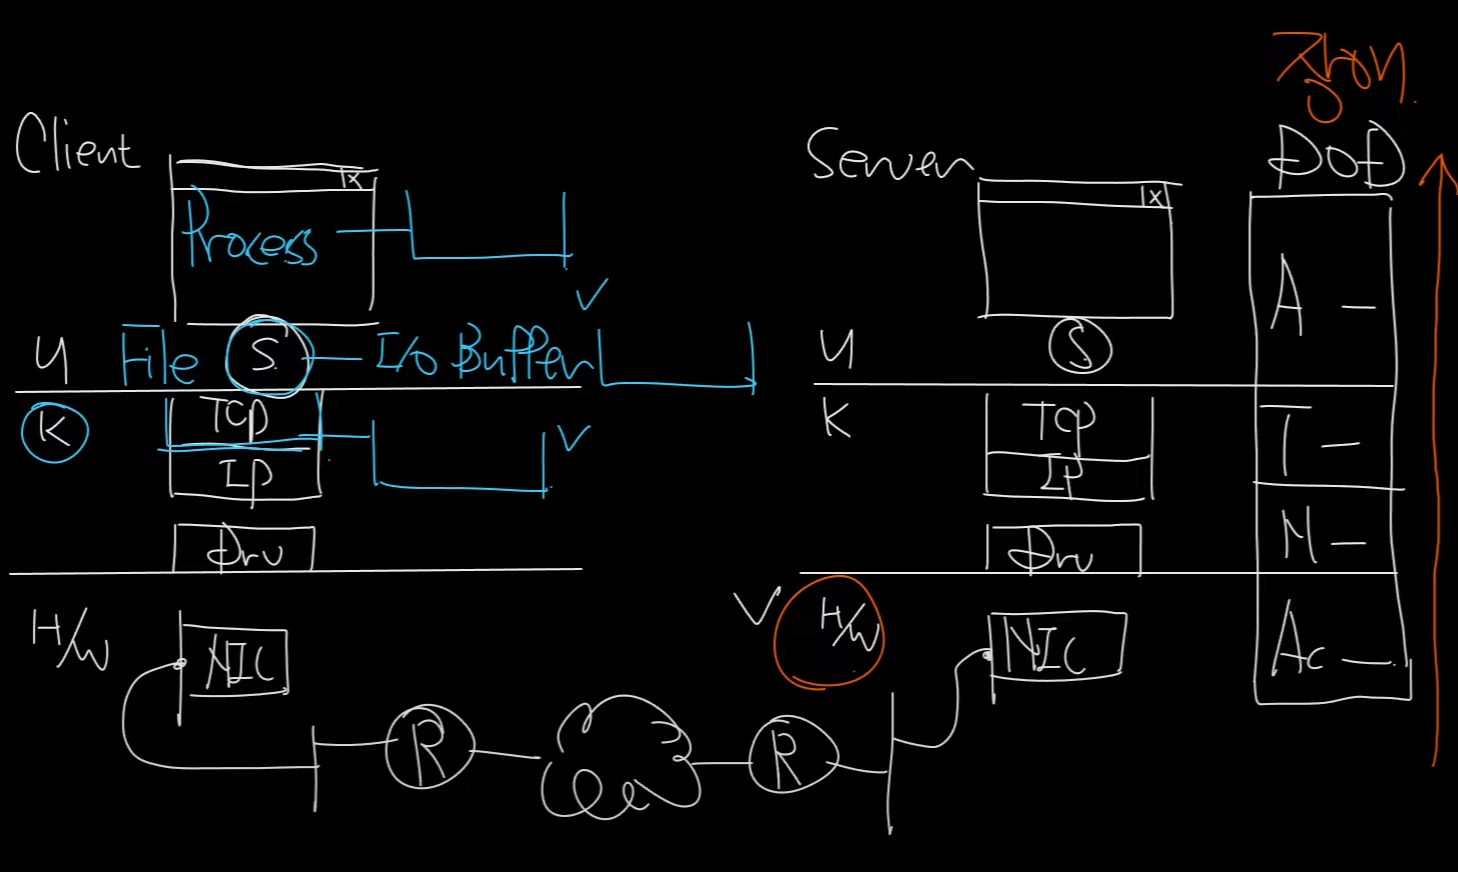 Client
x
Process
U
File
S
I/O Buffer
K
TCP
IP
Drv
H/W
NIC
R
R
Server
x
U
S
K
TCP
IP
Drv
H/W
NIC
DOD
A —
T —
N —
Ac —